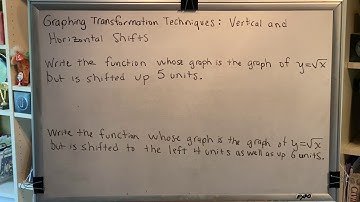 Graphing Transformation Techniques: Vertical and
Horizontal Shifts
Write the function whose graph is the graph of y=√x
but is shifted up 5 units.
Write the function whose graph is the graph of y=√x
but is shifted to the left 4 units as well as up 6 units.